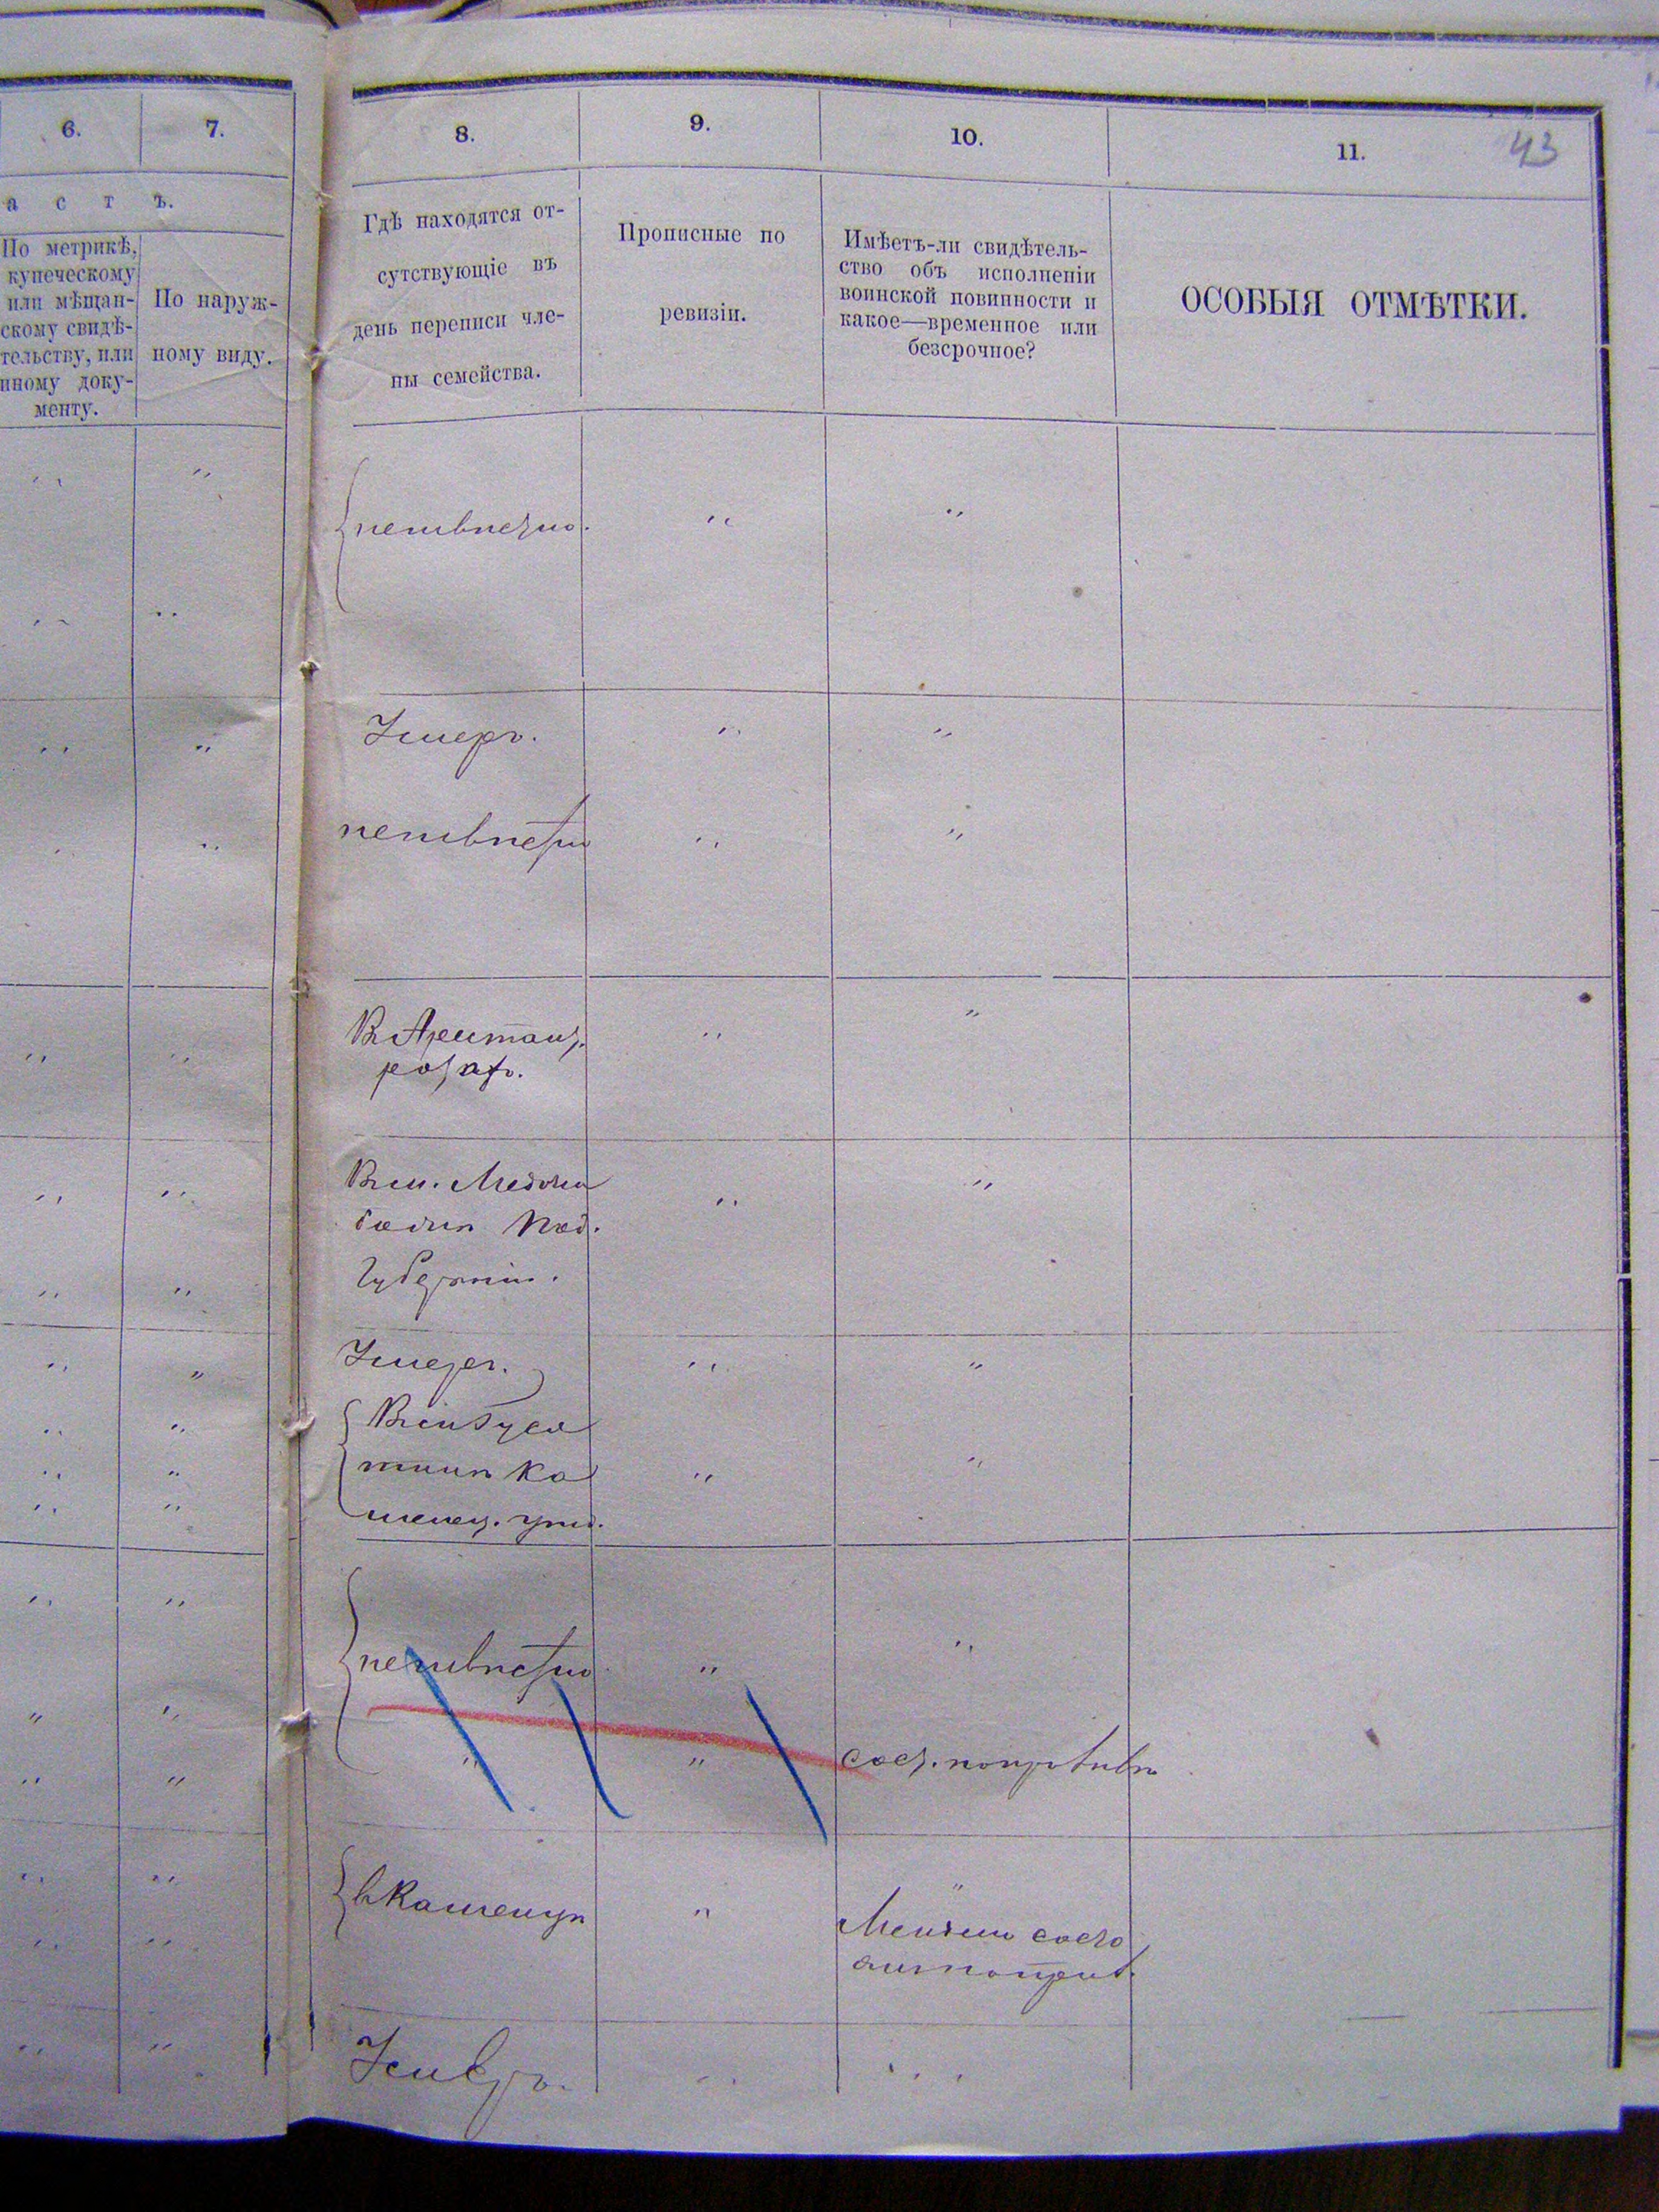 6.
7.
8.
9.
10.
11.
43
а с т ъ.
По метрикѣ,
купеческому
или мѣщан-
скому свидѣ-
тельству, или
иному доку-
менту.
По наруж-
ному виду.
Гдѣ находятся от-
сутствующіе въ
день переписи чле-
ны семейства.
Прописные по
ревизіи.
Имѣетъ-ли свидѣтель-
ство объ исполненіи
воинской повинности и
какое—временное или
безсрочное?
ОСОБЫЯ ОТМѢТКИ.
неизвѣстно.
Умеръ.
неизвѣстно
В Арестан.
ротахъ.
Вм. Меджи
божѣ Под.
Губерніи.
Умеръ.
неизвѣстно
вКаменцѣ
Умеръ.